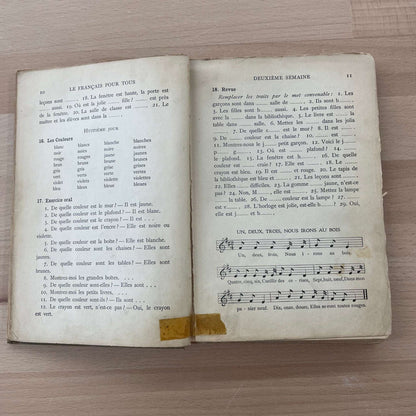 10 LE FRANÇAIS POUR TOUS
leçons sont ..... 18. La fenêtre est haute, la porte est
..... aussi. 19. Où est la jolie ..... fille? ..... est près
de la fenêtre. 20. La salle de classe est ..... 21. Le
maître et les élèves sont dans .....
HUITIÈME JOUR
16. Les Couleurs
blanc blancs blanche blanches
noir noirs noire noires
rouge rouges
brun bruns brune brunes
gris gris grise grises
vert verts verte vertes
violet violets violette violettes
bleu bleus bleue bleues
17. Exercice oral
1. De quelle couleur est le mur? — Il est jaune.
2. De quelle couleur est le plafond? — Il est blanc.
3. De quelle couleur est le crayon? — Il est ....
4. De quelle couleur est l'encre? — Elle est noire ou
violette.
5. De quelle couleur est la boîte? — Elle est blanche.
6. De quelle couleur sont les chaises? — Elles sont
jaunes.
7. De quelle couleur sont les tables? — Elles sont
brunes.
8. Montrez-moi les grandes boîtes.
9. De quelle couleur sont-elles? — Elles sont ....
10. Montrez-moi les petits livres.
11. De quelle couleur sont-ils? — Ils sont ....
12. Le crayon est vert, n'est-ce pas? — Oui, le crayon
est vert.
DEUXIÈME SEMAINE 11
18. Revue
Remplacer les traits par le mot convenable: 1. Les
garçons sont dans ..... salle de ..... 2. Ils sont h .....
3. Les filles sont h ..... aussi. 4. Les élèves sont
..... avec ..... dans la bibliothèque. 5. Le livre est .....
la table. 6. Mettez les ..... dans les jolies
..... 7. De quelle couleur est le mur? 8. Il est .....
9. De quelle couleur est le ..... ? 10. Il est .....
11. Montrez-nous le j ..... petit garçon. 12. Voici le j .....
p ..... g ..... 13. Où est ..... plafond? 14. .....
le plafond. 15. La fenêtre est h ..... 16. De quelle
couleur est ..... craie? 17. Elle est ..... 18. Le .....
crayon est bleu. 19. Il est ..... 20. Le tapis de la
bibliothèque est bleu et ..... 21. Les chaises sont .....
22. Elles ..... difficiles. 23. La gomme ..... jaune, n'est-ce
pas? 24. Non, M. ..... elle est ..... 25. Mettez la lampe
..... la table. 26. De ..... couleur est la lampe? 27. .....
est v ..... 28. L'horloge est jolie, est-elle b ..... ? 29. Oui,
elle est j ..... et b .....
UN, DEUX, TROIS, NOUS IRONS AU BOIS
Un, deux, trois, Nous i - rons au bois,
Quatre, cinq, six, Cueillir des ce - rises, Sept, huit, neuf, Dans mon
pa - nier neuf. Dix, onze, douze, Elles se-ront toutes rouges.